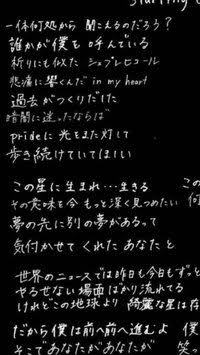 一体何処から 聞こえるのだろう?
誰かが僕を 呼んでいる
祈りにも似た シュプレヒコール
悲痛に響くんだ in my heart
過去がつくりだした
暗闇に迷ったならば
prideに光をまた灯して
歩き続けていてほしい
この星に生まれ…生きる
その意味を今 もっと深く見つめたい
夢の先に別の夢があるって
気付かせてくれた あなたと
世界のニュースでは昨日も今日もずっと
やるせない場面ばかり流れてる
けれどこの地球より 綺麗な星は存
だから僕は前へ前へ進むよ 僕
そこであなたがあなたが 笑っ